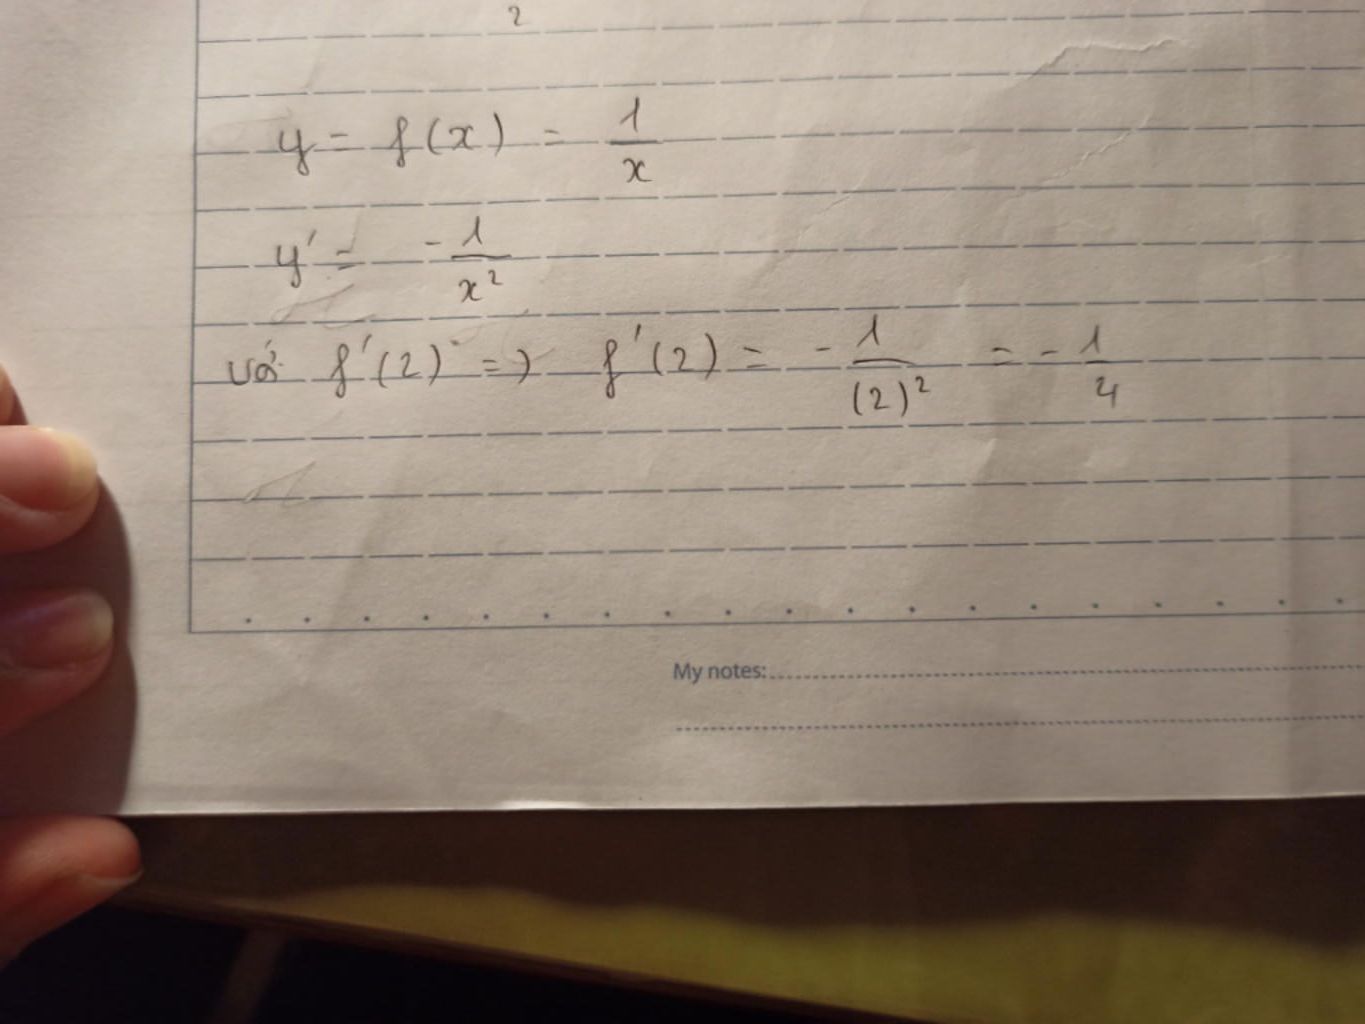 2
y = f(x) = 1/x
y' = - 1/x²
với f'(2) => f'(2) = - 1/(2)² = - 1/4
My notes: